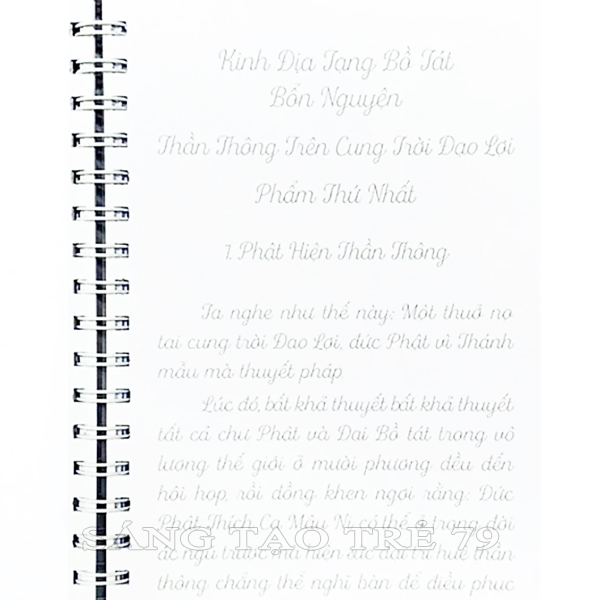 Kinh Địa Tạng Bồ Tát
Bổn Nguyện
Thần Thông Trên Cung Trời Đạo Lợi
Phẩm Thứ Nhất
1. Phật Hiện Thần Thông
Ta nghe như thế này: Một thuở nọ
tại cung trời Đao Lợi, đức Phật vì Thánh
mẫu mà thuyết pháp.
Lúc đó, bất khả thuyết bất khả thuyết
tất cả chư Phật và Đại Bồ tát trong vô
lượng thế giới ở mười phương đều đến
hội họp, rồi đồng khen ngợi rằng: Đức
Phật Thích Ca Mâu Ni, có thể ở trong đời
ác ngũ trược mà hiện sức đại trí huệ thần
thông chẳng thể nghĩ bàn để điều phục
SÁNG TẠO TRẺ 79